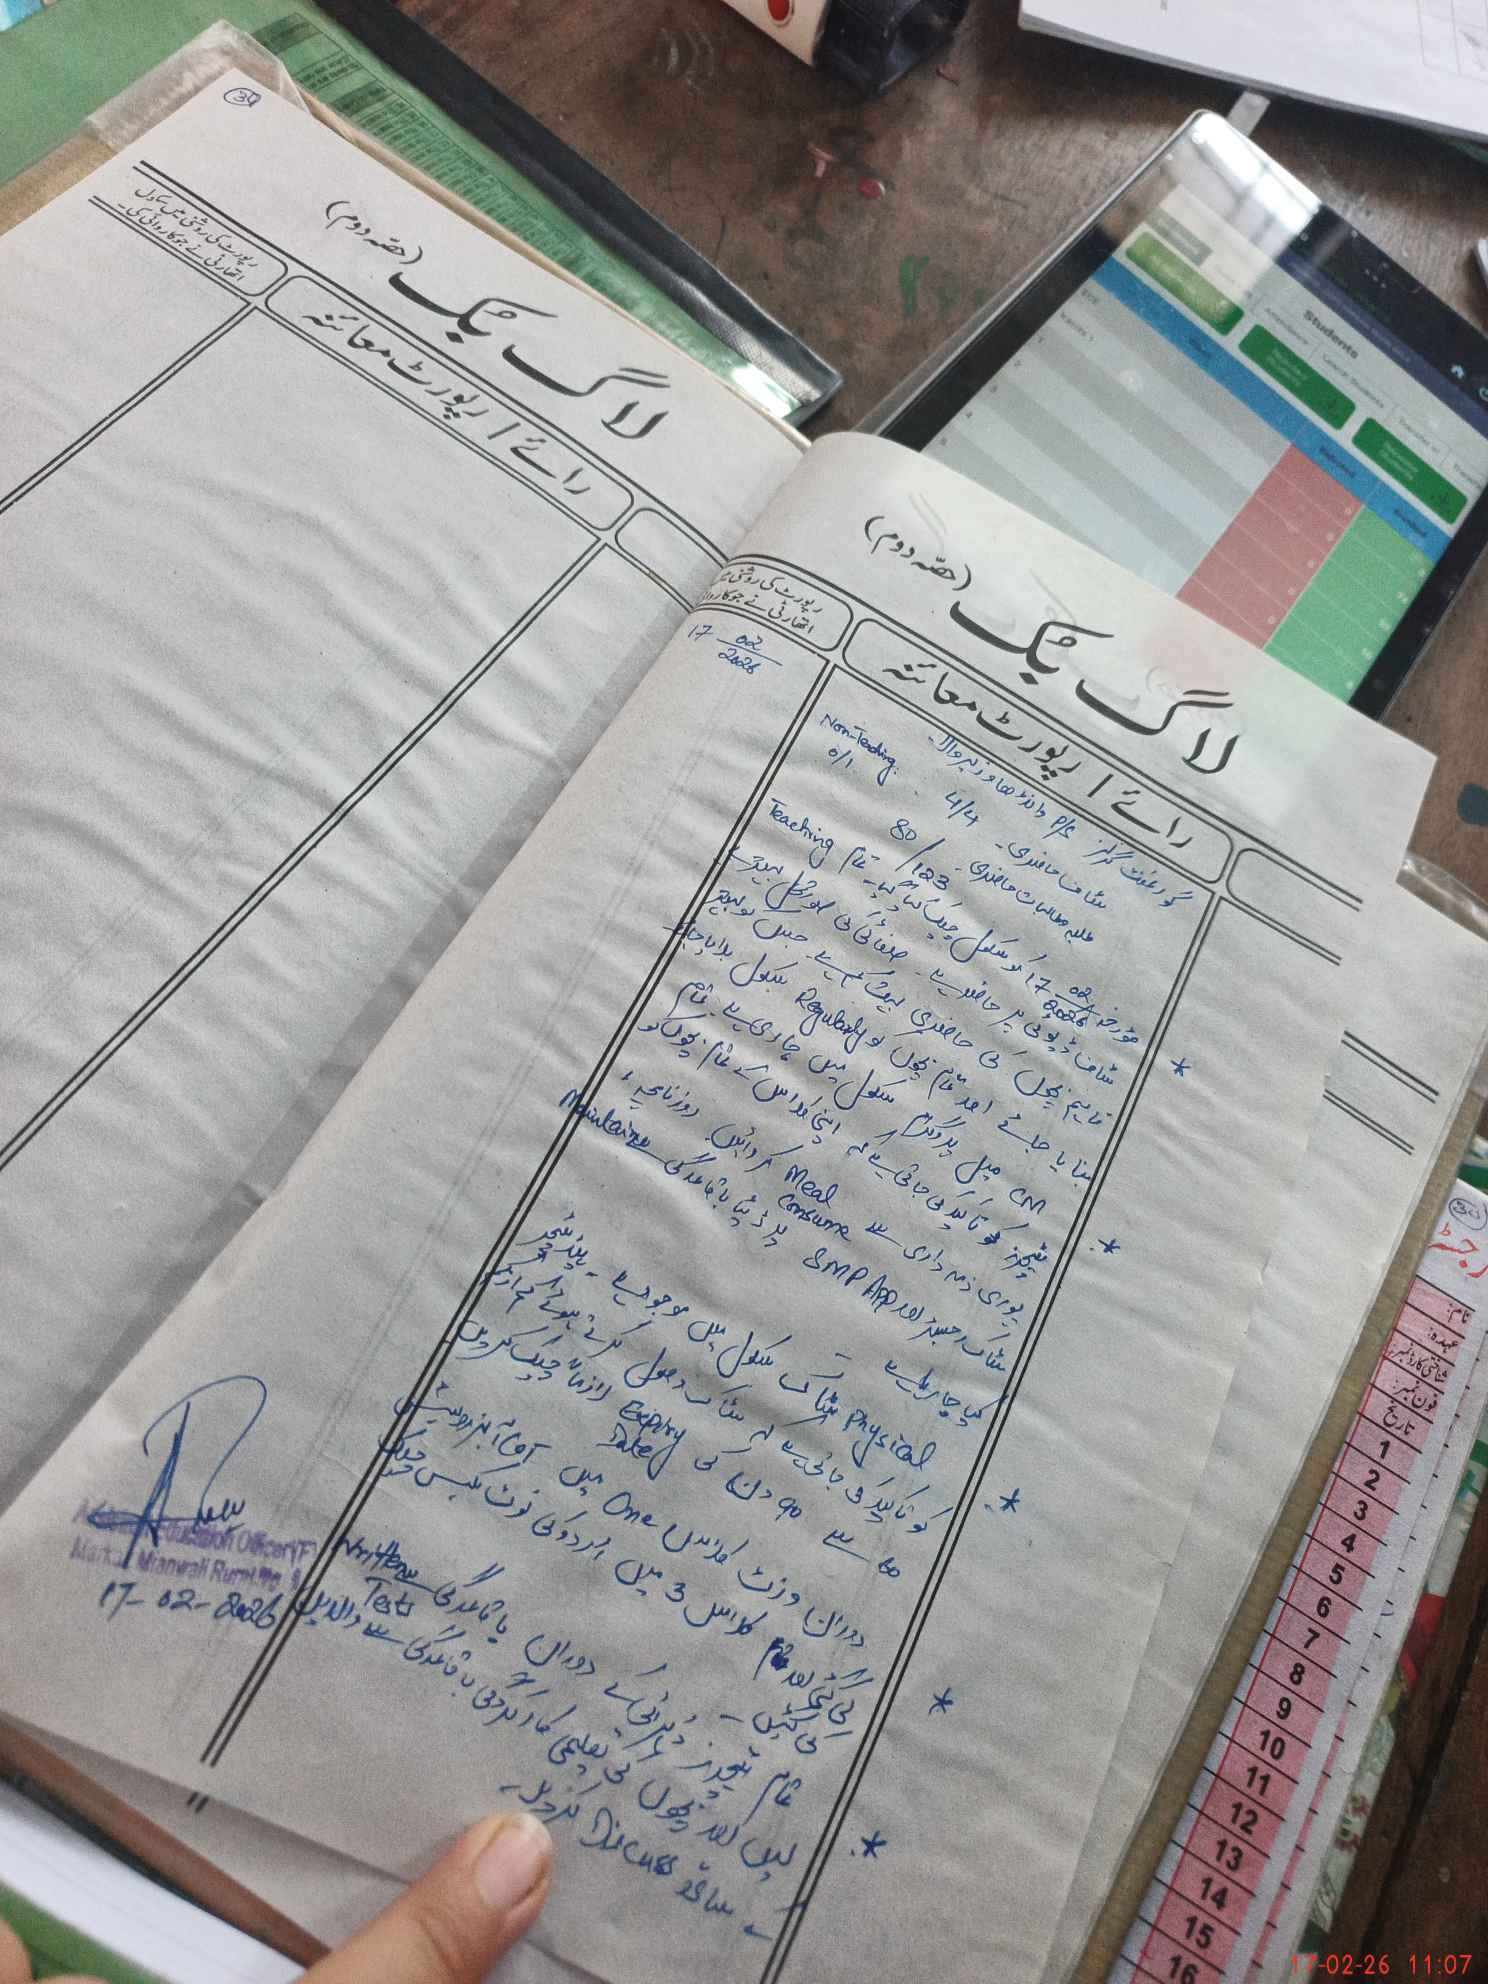 34
لاگ بک (حصّہ دوم)
رائے / رپورٹ معائنہ
رپورٹ کی روشنی میں متبادل
اتھارٹی نے جو کاروائی کی۔
لاگ بک (حصّہ دوم)
رائے / رپورٹ معائنہ
رپورٹ کی روشنی میں
اتھارٹی نے جو کاروائی
17 02/2026
گورنمنٹ گرلز P/S
سٹاف حاضری۔ 4/4 Non-Teaching: 0/1
طلبہ و طالبات حاضری۔ 80/123
* مورخہ 17 02/2026 کو سکول چیک کیا گیا۔ تمام Teaching
سٹاف ڈیوٹی پر حاضر ہے۔ صفائی کی صورتحال بہتر ہے
تاہم بچوں کی حاضری بہت کم ہے۔ جس کو بہتر
بنایا جائے اور تمام بچوں کو Regularly سکول بلایا جائے
* CM میل پروگرام سکول میں جاری ہے۔ تمام
ٹیچرز کو تاکید کی جاتی ہے کہ اپنی کلاس کے تمام بچوں کو
پوری ذمہ داری سے Meal Consume کروائیں۔ روزنامچہ،
سٹاک رجسٹر اور SMP App پر ڈیٹا باقاعدگی سے Maintain
کیا جا رہا ہے۔
* Physical سٹاک سکول میں موجود ہے۔
کو تاکید کی جاتی ہے کہ سٹاک وصول کرتے ہوئے کم از کم
60 سے 90 دن کی Expiry Date لازماً چیک کر لیں
* دوران وزٹ کلاس One میں آبزرویشن
کی گئی اور کلاس 3 میں اردو کی نوٹ بکس چیک
کی گئیں۔
* تمام ٹیچرز دہرائی کے دوران باقاعدگی سے Written Tests
لیں اور بچوں کی تعلیمی کارکردگی باقاعدگی سے والدین
کے ساتھ Discuss کریں۔
Education Officer (F)
Markaz Mianwali Rural
17-02-2026
Students
30
رجسٹر
نام:
عہدہ:
شناختی کارڈ نمبر:
فون نمبر:
تاریخ
1
2
3
4
5
6
7
8
9
10
11
12
13
14
15
16
17-02-26 11:07